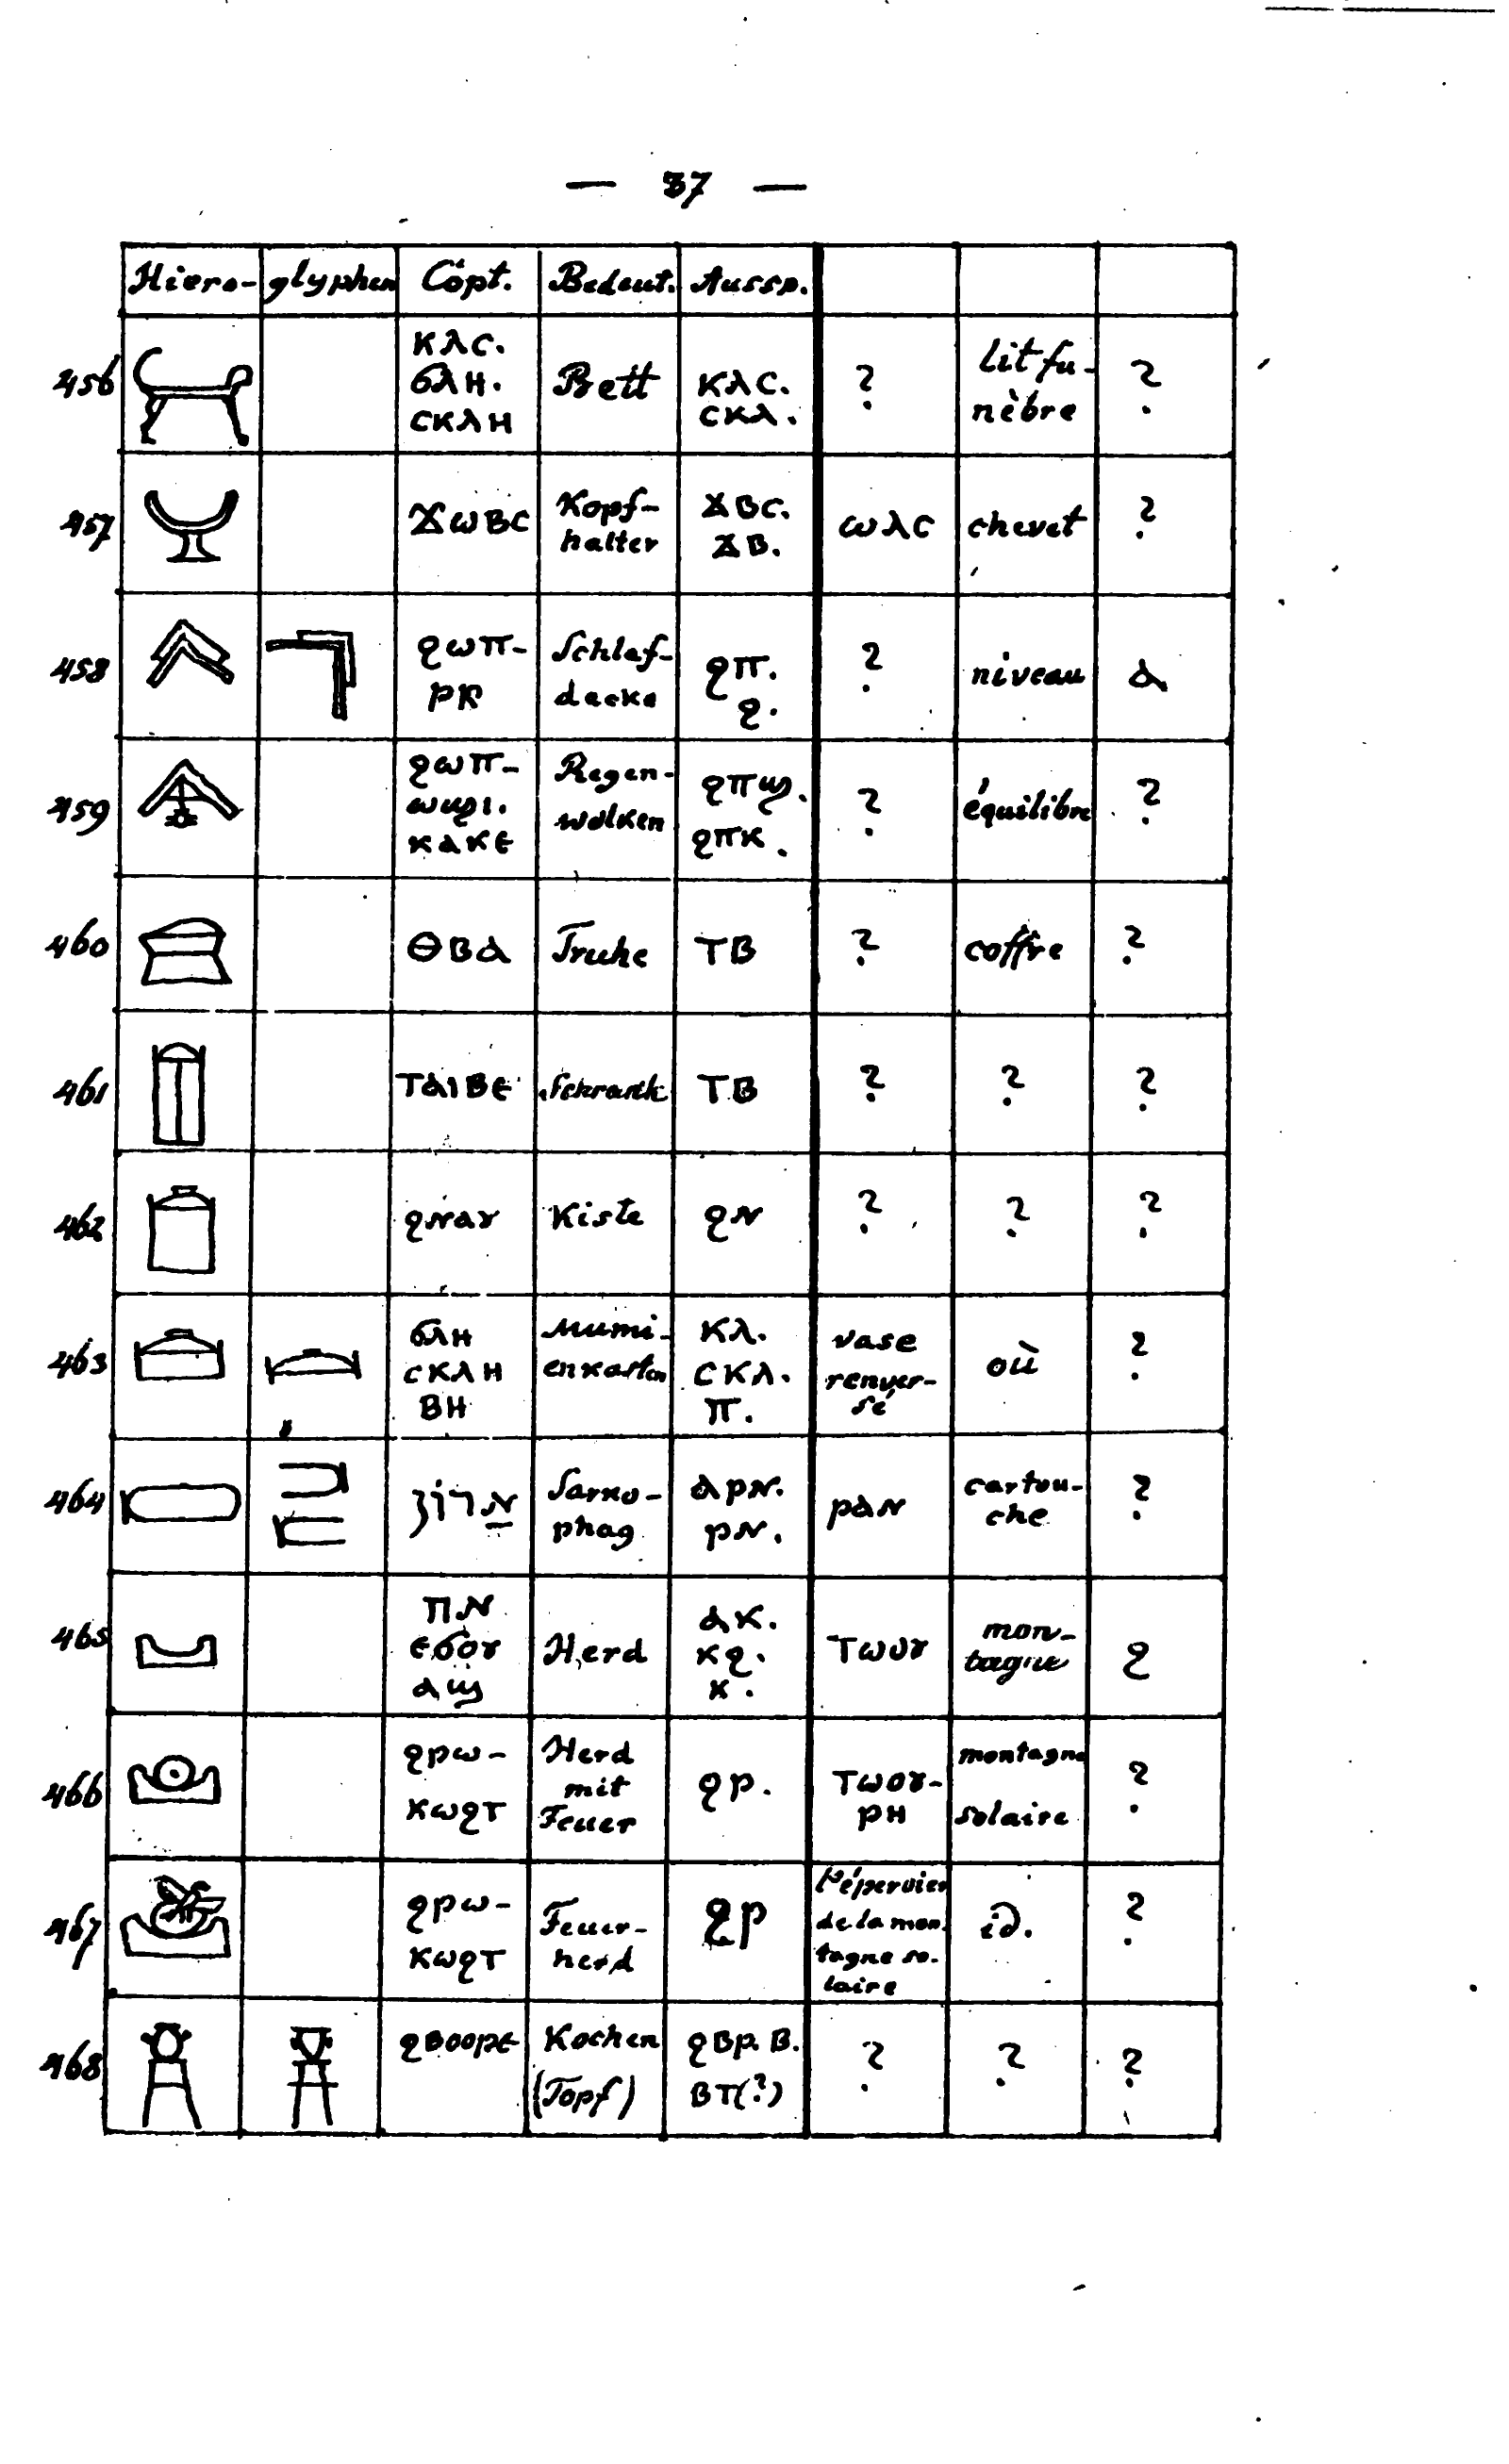 — 37 —
Hiero- glyphen Copt. Bedeut. Aussp.
456 ⲕⲗⲥ. ϭⲗⲏ. ⲥⲕⲗⲏ Bett ⲕⲗⲥ. ⲥⲕⲗ. ? lit fu- nèbre ?
457 ϫⲱⲃⲥ Kopf- halter ϫⲃⲥ. ϫⲃ. ⲱⲗⲥ chevet ?
458 ϩⲱⲡ- ⲣⲕ Schlaf- decke ϩⲡ. ϩ. ? niveau ⲁ
459 ϩⲱⲡ- ⲱϣⲓ. ⲕⲁⲕⲉ Regen- wolken ϩⲡϣ. ϩⲡⲕ. ? équilibre ?
460 ⲑⲃⲁ Truhe ⲧⲃ ? coffre ?
461 ⲧⲁⲓⲃⲉ Schrank ⲧⲃ ? ? ?
462 ϩⲛⲁⲩ Kiste ϩⲛ ? ? ?
463 ϭⲗⲏ ⲥⲕⲗⲏ ⲃⲏ Mumi- enkasten ⲕⲗ. ⲥⲕⲗ. ⲡ. vase renver- sé où ?
464 ארון Sarko- phag ⲁⲣⲛ. ⲣⲛ. ⲣⲁⲛ cartou- che ?
465 ⲡⲛ ⲉϭⲟⲩ ⲁϣ Herd ⲁⲕ. ⲕϩ. ⲕ. ⲧⲱⲟⲩ mon- tagne ϩ
466 ϩⲣⲱ- ⲕⲱϩⲧ Herd mit Feuer ϩⲣ. ⲧⲱⲟⲩ- ⲣⲏ montagne solaire ?
467 ϩⲣⲱ- ⲕⲱϩⲧ Feuer- herd ϩⲣ l'épervier de la mon- tagne so- laire id. ?
468 ϩⲃⲟⲟⲣⲉ Kochen (Topf) ϩⲃⲣ. ⲃ. ⲃⲧ(?) ? ? ?